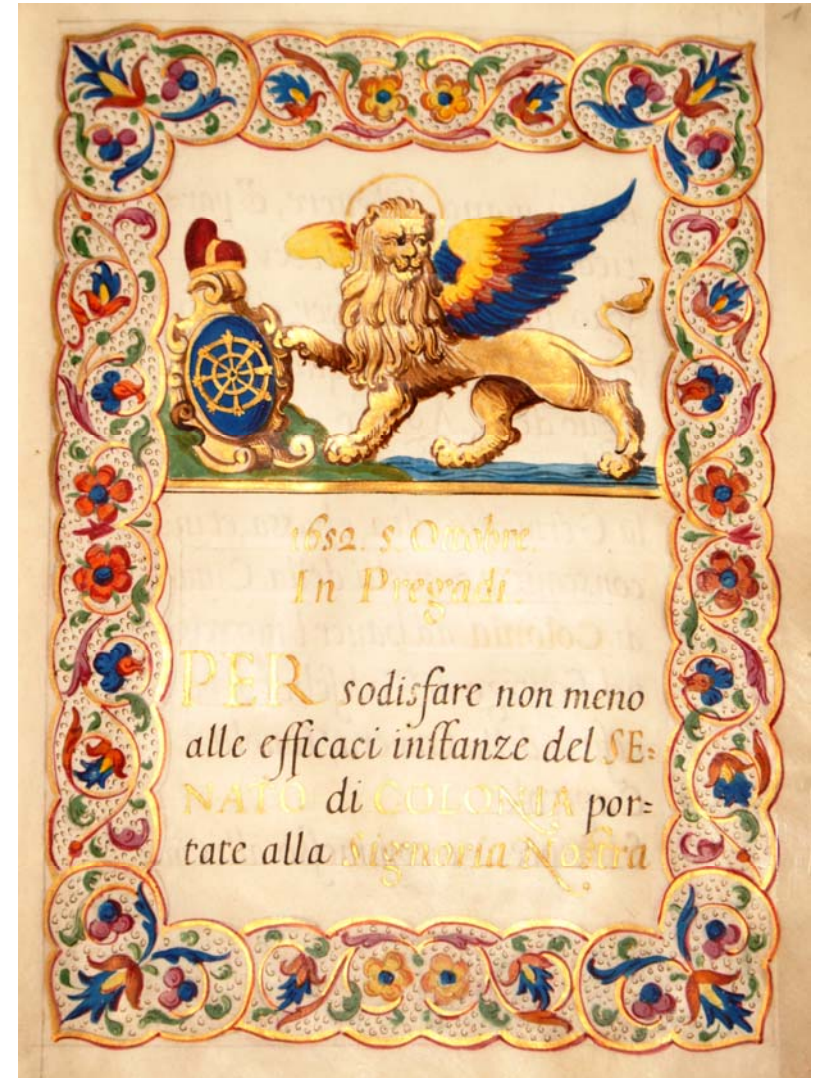 1
1652. 5. Ottobre.
In Pregadi.
PER sodisfare non meno
alle efficaci inſtanze del SE=
NATO di COLONIA por=
tate alla Signoria Noſtra